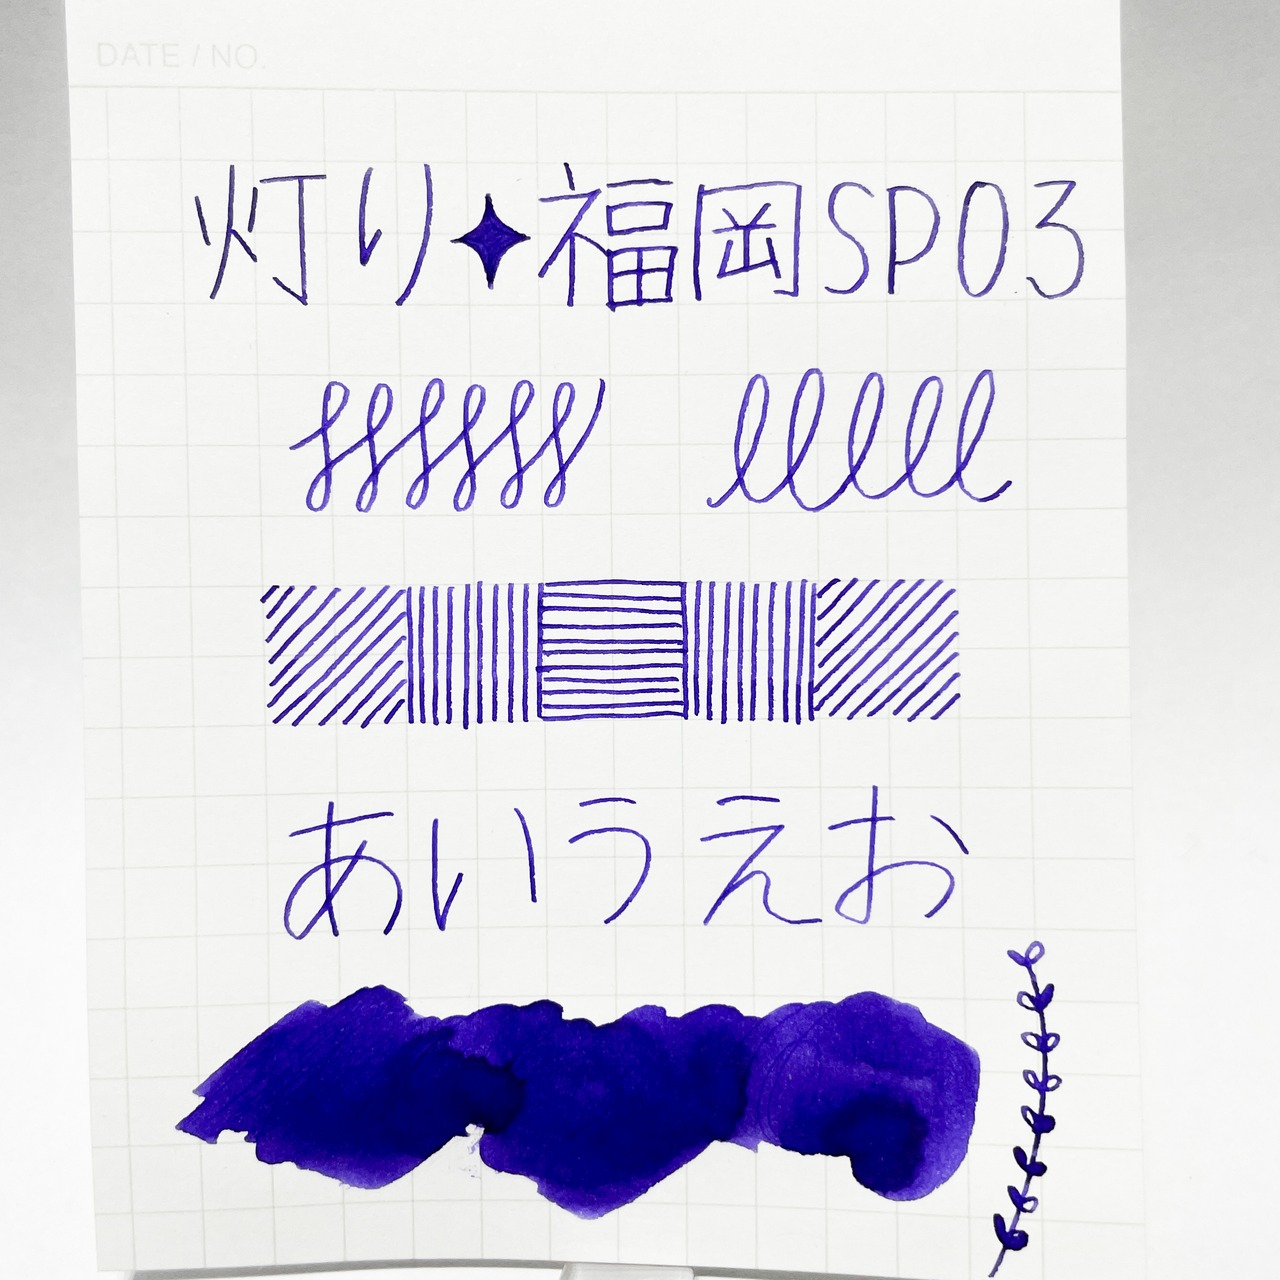 DATE / NO.
灯り✦福岡SP03
あいうえお